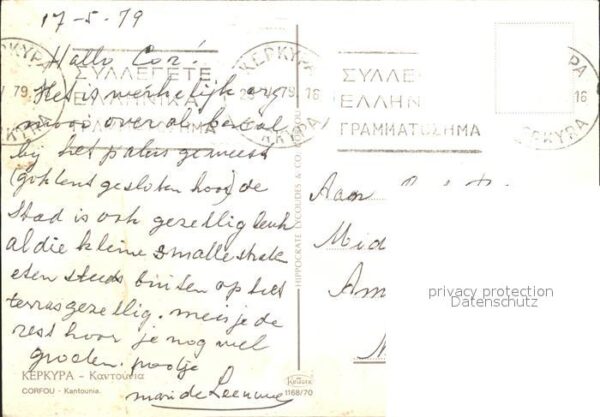 17-5-79
Hallo Cor!
Het is werkelijk erg
mooi overal
bij het paleis geweest
(gesloten hoor) de
Stad is ook gezellig leuk
al die kleine smalle straat
eten steeds buiten op het
terras gezellig. meisje de
rest hoor je nog wel
groeten. pootje
ΚΕΡΚΥΡΑ – Καντούνια
CORFOU - Kantounia.
ΚΕΡΚΥΡΑ
ΣΥΛΛΕΓΕΤΕ
ΕΛΛΗΝΙΚΑ
79
ΚΕΡΚΥΡΑ
79 16
ΚΕΡΚΥΡΑ
ΣΥΛΛΕ
ΕΛΛΗΝ
ΓΡΑΜΜΑΤΟΣΗΜΑ
16
ΚΕΡΚΥΡΑ
HIPPOCRATE LYCOUDES & CO. CORFOU
1168/70
Aan
Mid
Am
privacy protection
Datenschutz